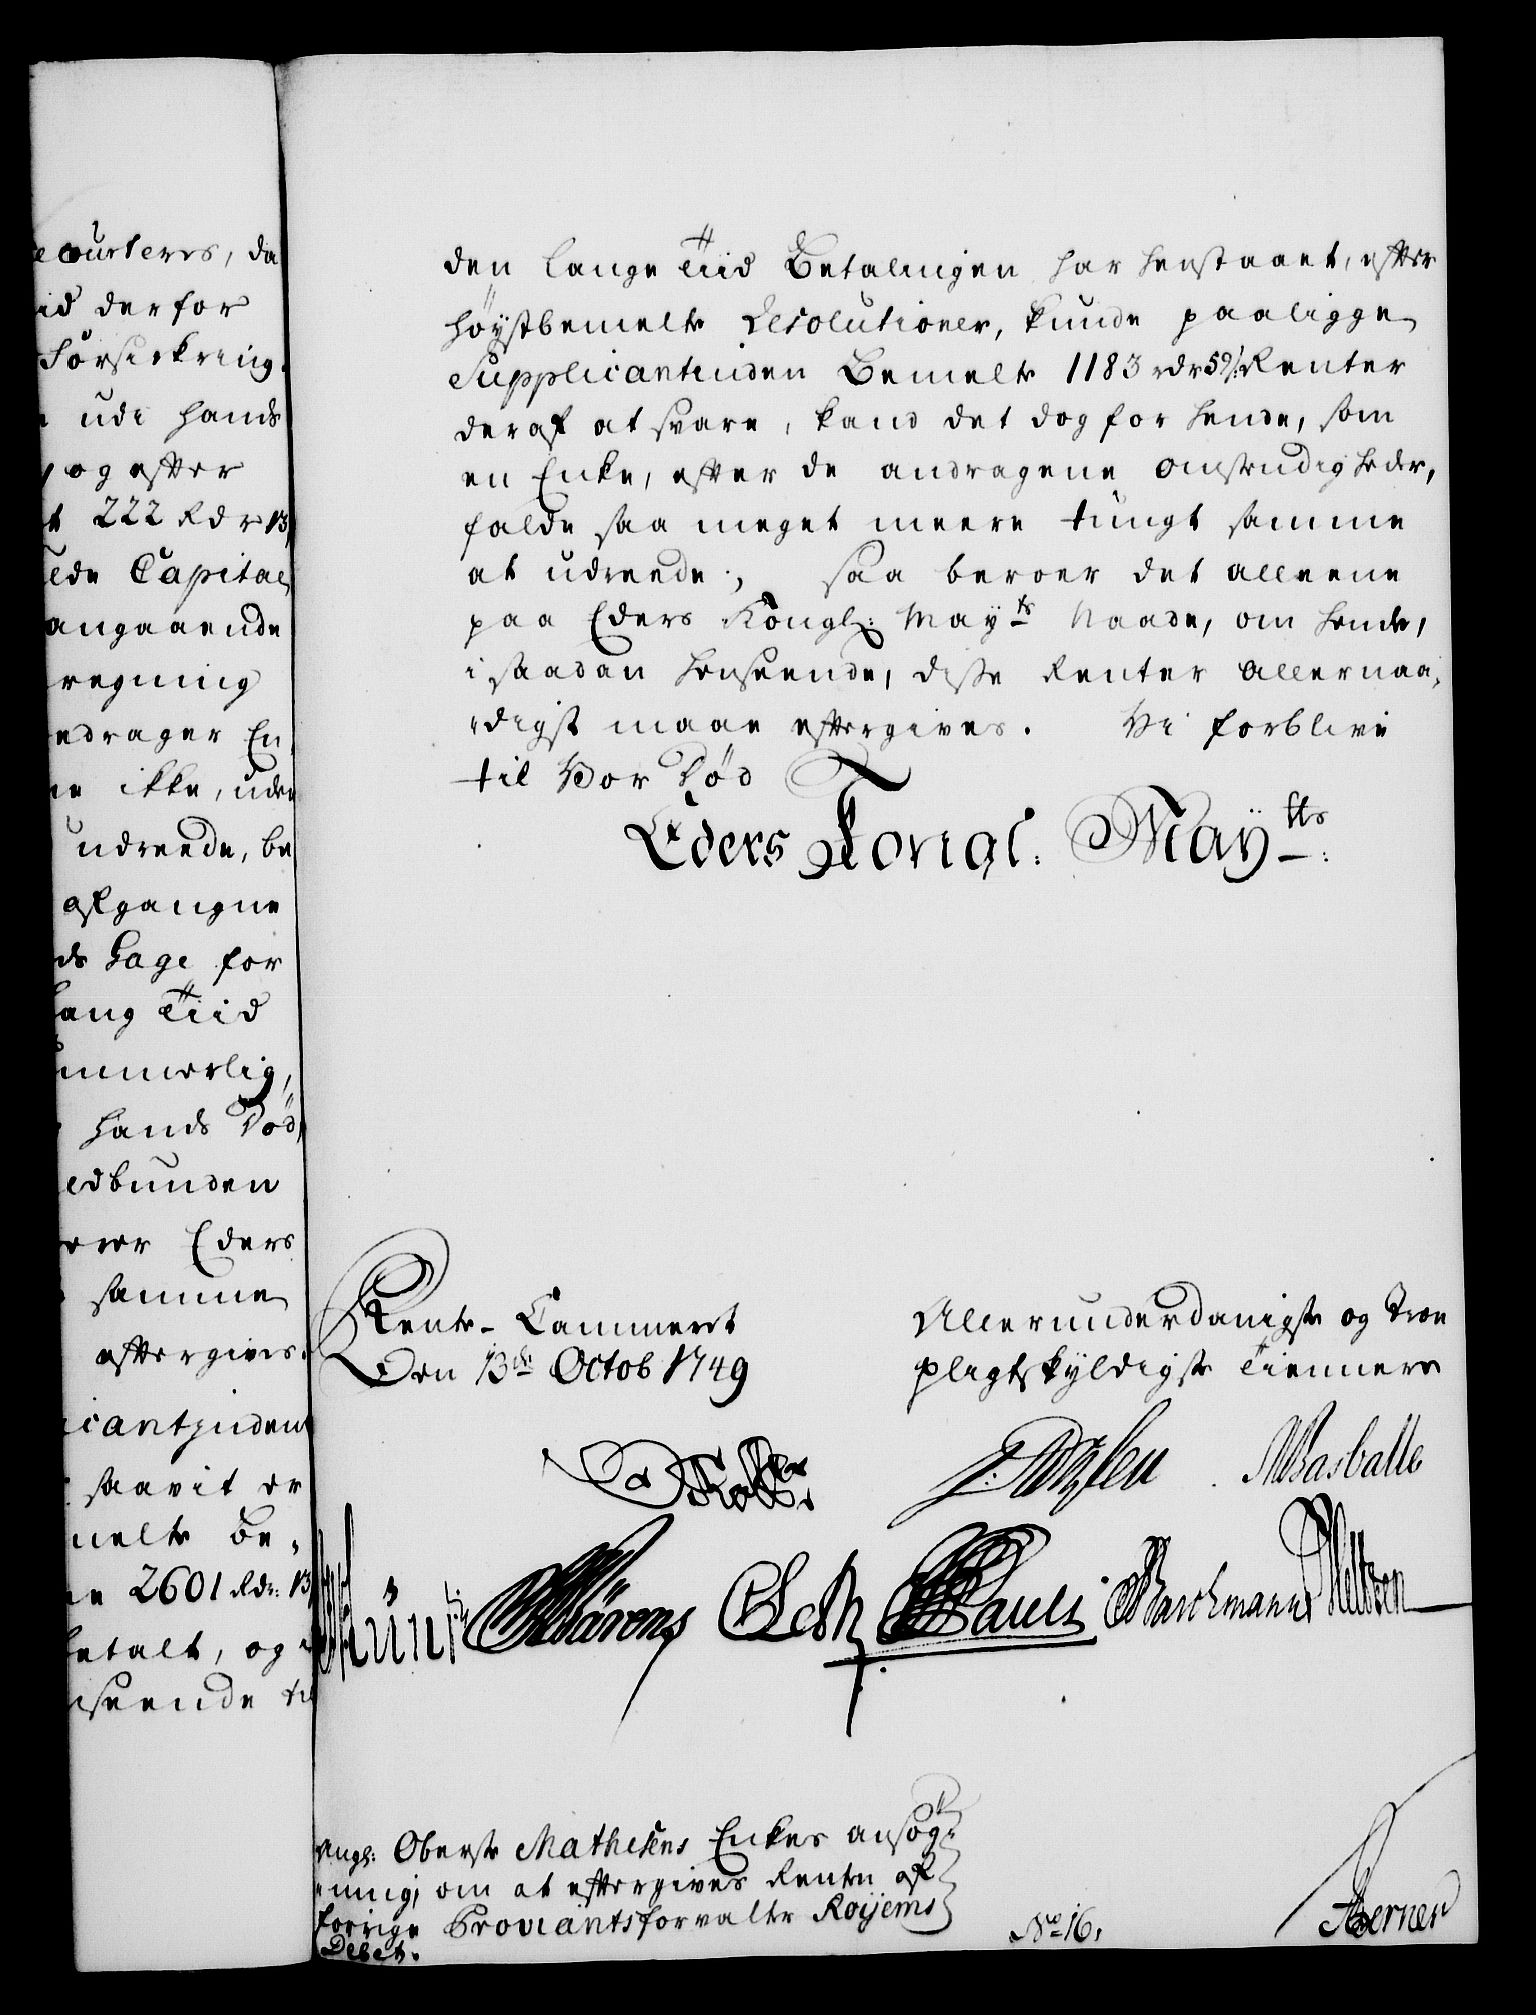 ecurteres, da
id derfor
Forsickring.
udi hands
og efter
t 222 Rdr 13
lde Capital
angaaende
regning
edrager En,
ne ikke, uden
udreede, be
afgangne
ds Sage for
lang Tiid
ummerlig,
hands Død,
edbunden
over Eders
samme
eftergives.
icantinden
saavit er
melte Be,
ne 2601 Rdr: 13
betalt, og
nseende til
den lange Tiid Betalingen har henstaaet, efter
høystbemelte Resolutioner, kunde paaligge
Supplicantinden Bemelte 1183 rdr 59/: Renter
deraf at svare, kand det dog for hende, som
en Enke, efter de andragene omstendigheder,
falde saa meget meere tungt samme
at udreede., saa beroer det alleene
paa Eders Kongl: Mayts Naade, om hende,
i saadan henseende, disse Renter allernaa,
digst maae eftergives. Vi forblive
til Vor Død
Eders Kongl: Maytts:
Rente-Cammeret
Den 13de Octob 1749
Allerunderdanigste og Troe
pligtskyldigste Tiennere
Pauli
Angl: Oberste Mathesens Enkes ansøg,
ning, om at eftergives Renten af
forrige Proviantsforvalter Roijems
Debet.
No 16.
Berner